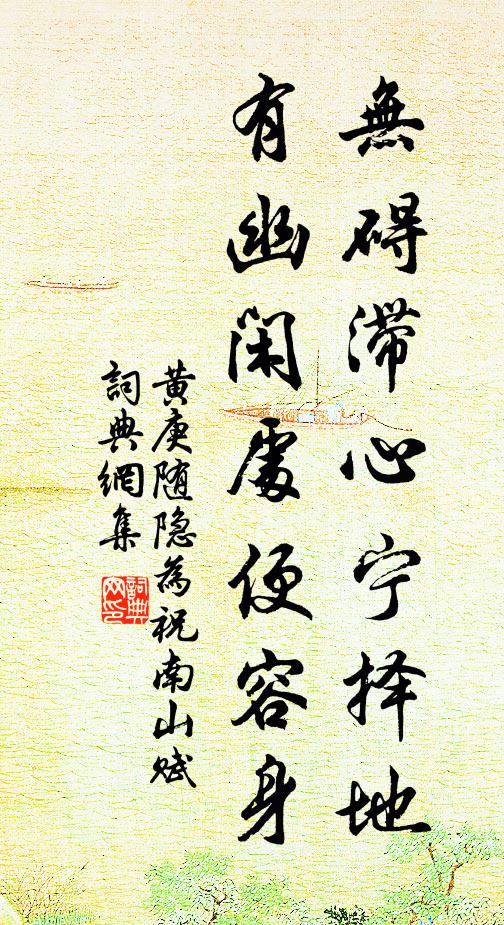 無碍滞心宁择地
有幽闲處便容身
黄庚随隐為祝南山赋
詞典網集